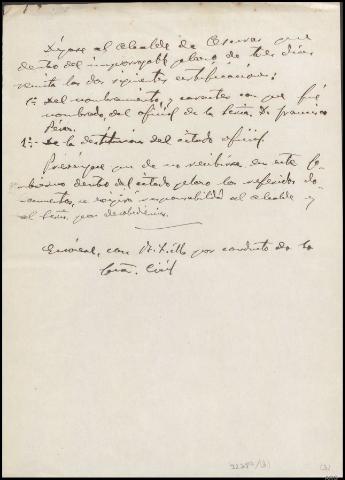 Dígase al alcalde de que
dentro del improrrogable plazo de tres días
remita las dos siguientes certificaciones:
1º Del nombramiento, y caracter con que fué
nombrado, del oficial de la Sria. D. Francisco
Pérez.
1º:- De la destitución del citado oficial.
Prevéngase que de no recibirse en este Go-
bierno dentro del citado plazo los referidos do-
cumentos, se exigirá responsabilidad al alcalde y
al Srio. por desobediencia.
con por conducto de la
Gua. Civil
(3)